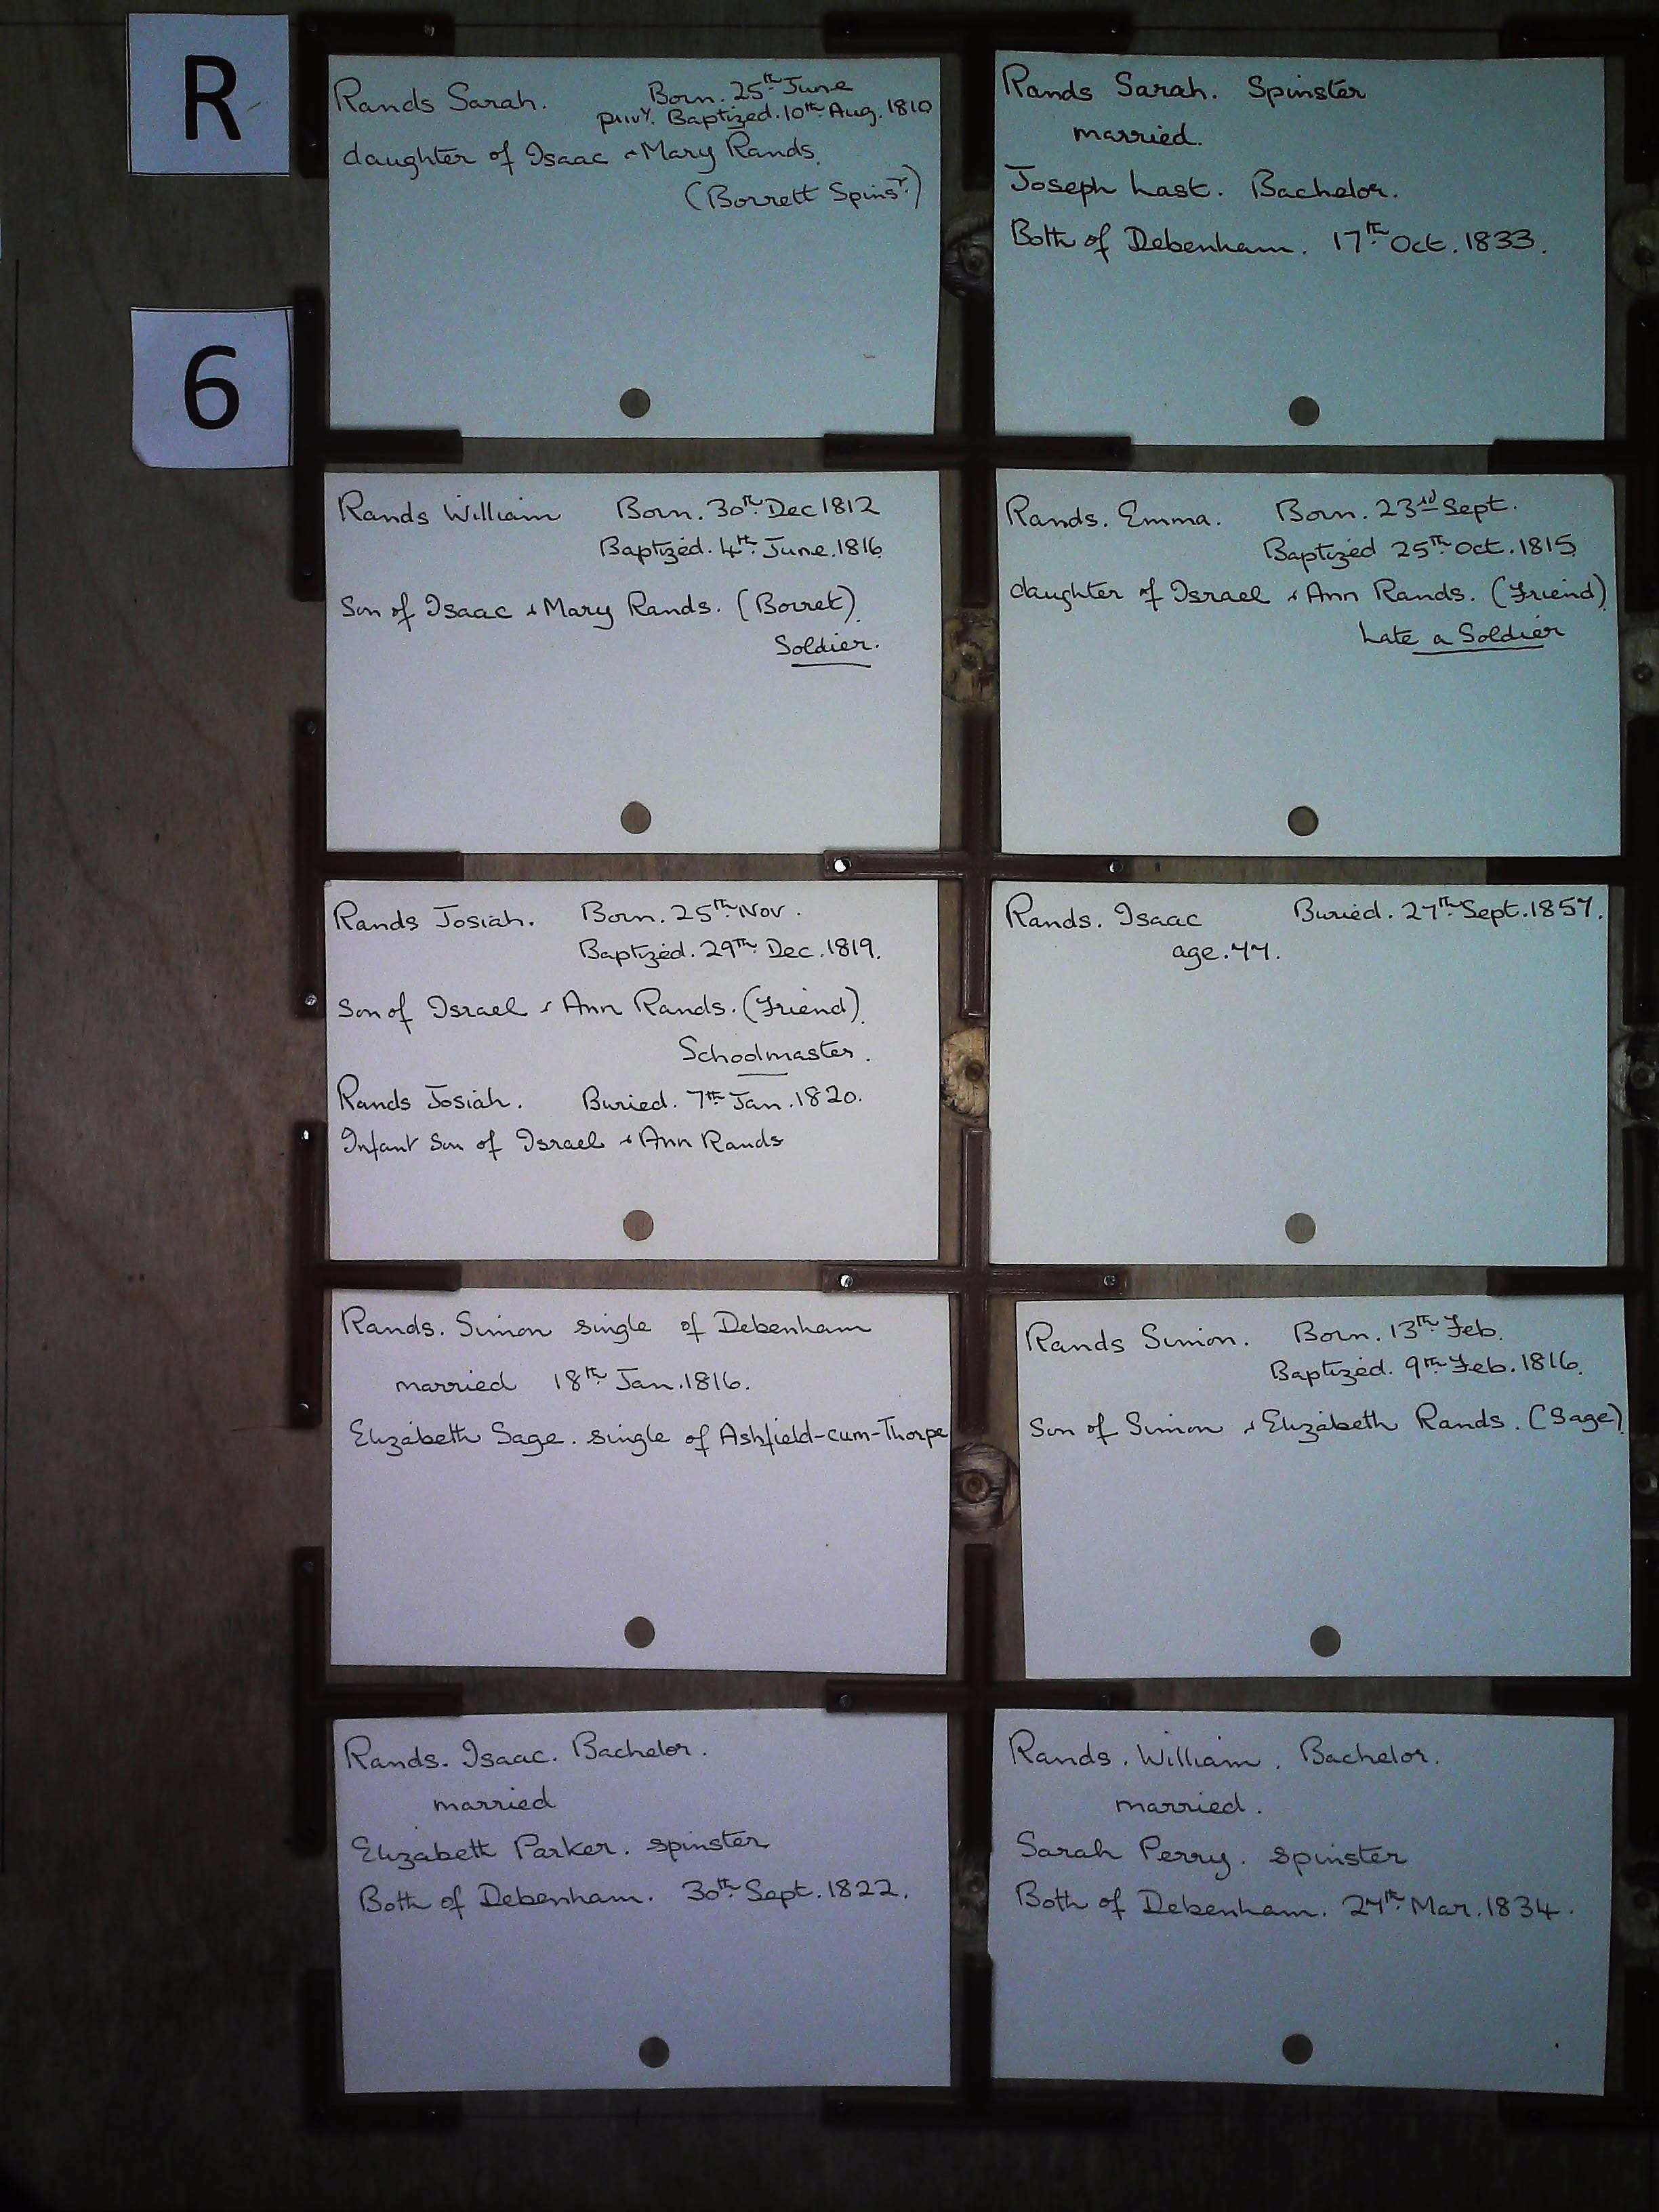 R
6
Rands Sarah. Born. 25th June
privy. Baptized. 10th Aug. 1810
daughter of Isaac & Mary Rands.
(Borrett Spinsr.)
Rands Sarah. Spinster
married.
Joseph Last. Bachelor.
Both of Debenham. 17th Oct. 1833.
Rands William Born. 30th Dec 1812
Baptized. 4th June. 1816
Son of Isaac & Mary Rands. (Borret).
Soldier.
Rands. Emma. Born. 23rd Sept.
Baptized 25th Oct. 1815
daughter of Israel & Ann Rands. (Friend)
Late a Soldier
Rands Josiah. Born. 25th Nov.
Baptized. 29th Dec. 1819.
Son of Israel & Ann Rands. (Friend).
Schoolmaster.
Rands Josiah. Buried. 7th Jan. 1820.
Infant Son of Israel & Ann Rands
Rands. Isaac Buried. 27th Sept. 1857.
age. 77.
Rands. Simon single of Debenham
married 18th Jan. 1816.
Elizabeth Sage. single of Ashfield-cum-Thorpe
Rands Simon. Born. 13th Feb.
Baptized. 9th Feb. 1816.
Son of Simon & Elizabeth Rands. (Sage)
Rands. Isaac. Bachelor.
married
Elizabeth Parker. spinster
Both of Debenham. 30th Sept. 1822.
Rands. William. Bachelor.
married.
Sarah Perry. spinster
Both of Debenham. 27th Mar. 1834.